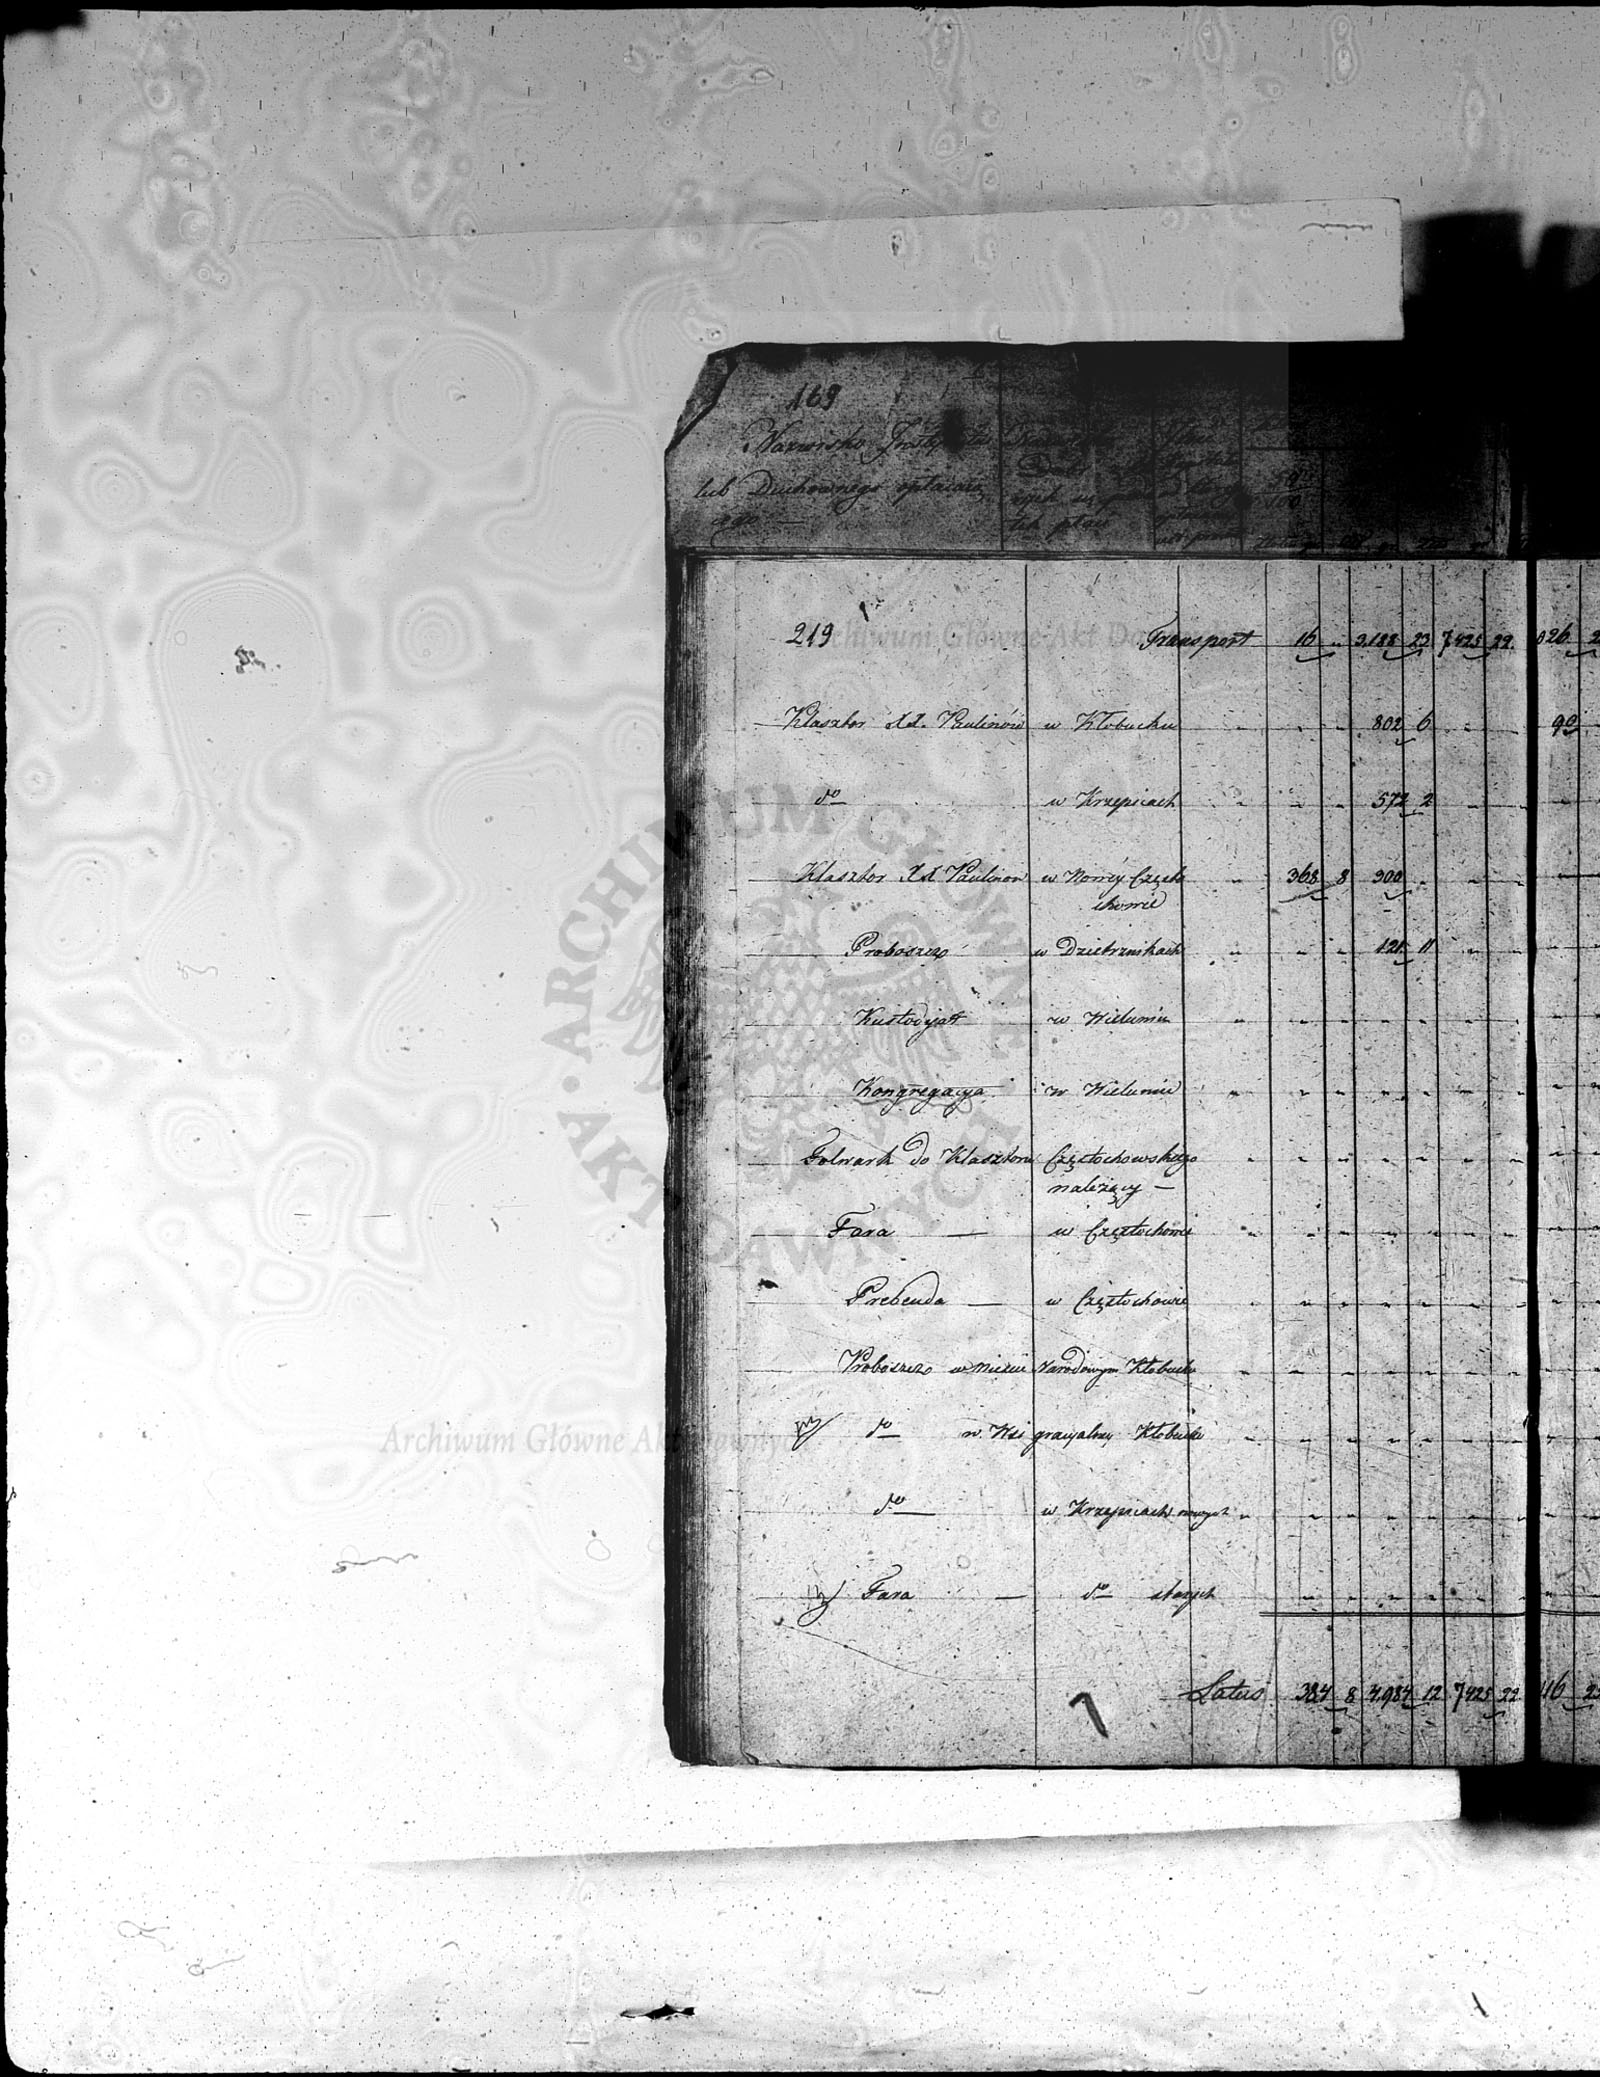 169
Nazwisko
lub Duchownego opłacaią
cego —
50
100
219 Transport 16 „ 3,188 23 7,425 22. 826
Klasztor XX. Paulinów w Kłobucku „ „ „ 802 6 „ „ 90
do w Krzepicach „ „ „ 572 2 „ „
Klasztor XX Paulinów w Nowéy Często
chowie
„ 368 8 300 „ „ „
Proboszcz w Dzietrznikach „ „ „ 121 11 „ „
Kustodyat w Wieluniu
Kongregacya w Wieluniu
Folwark do Klasztoru Częstochowskiego
należący —
Fara — w Częstochowie
Prebenda — w Częstochowie
Proboszcz w mieście Narodowym Kłobucku
do w Wsi gracyalney Kłobucku
do w Krzepicach nowych
Fara — do starych
Latus 384 8 4,984 12 7425 22 116
Archiwum Główne Akt Dawnych
ARCHIWUM GŁÓWNE AKT DAWNYCH